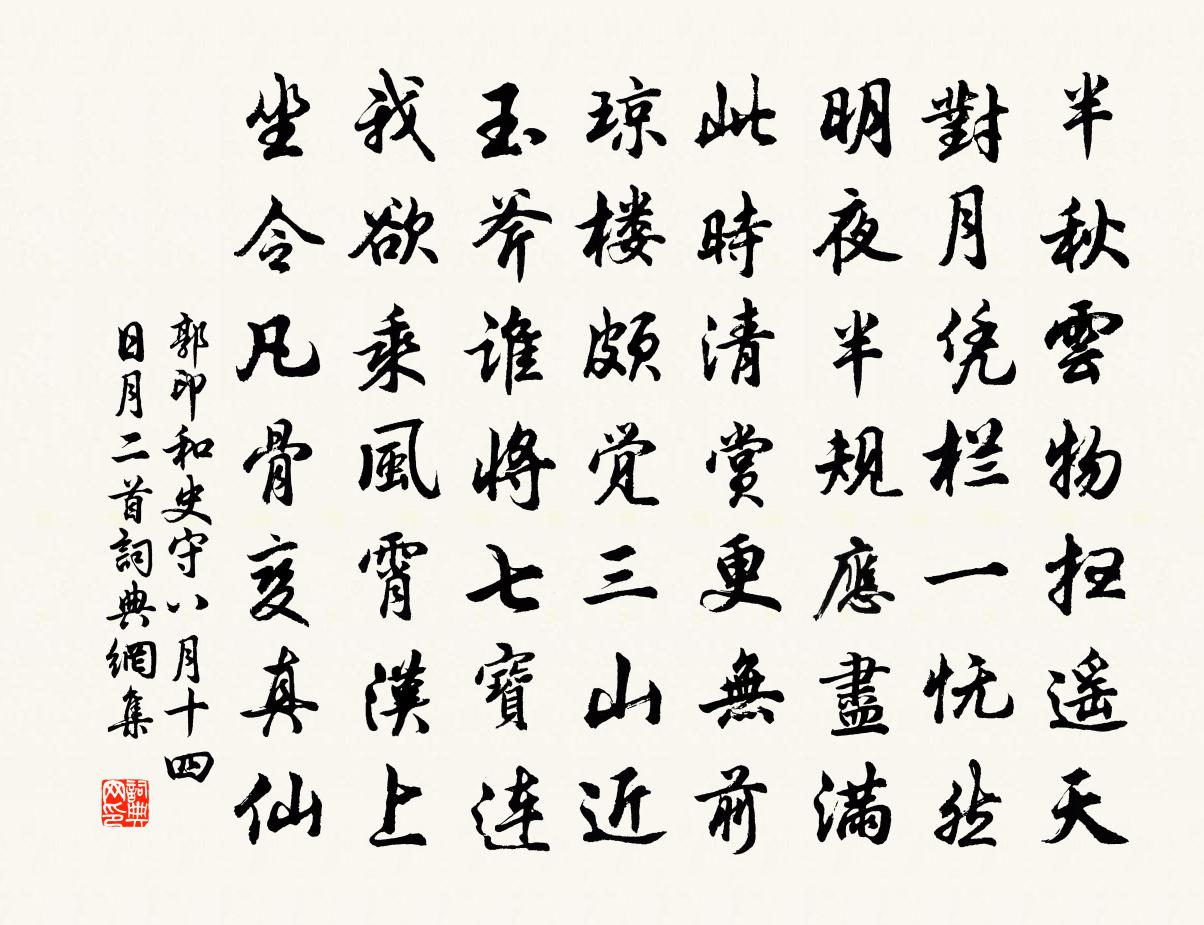 半秋雲物掃遥天
對月凭栏一怳然
明夜半規應盡滿
此時清賞更無前
琼楼頗觉三山近
玉斧誰將七寶連
我欲乘風霄漢上
坐令凡骨变真仙
郭印和史守八月十四
日月二首詞典網集
詞典网印